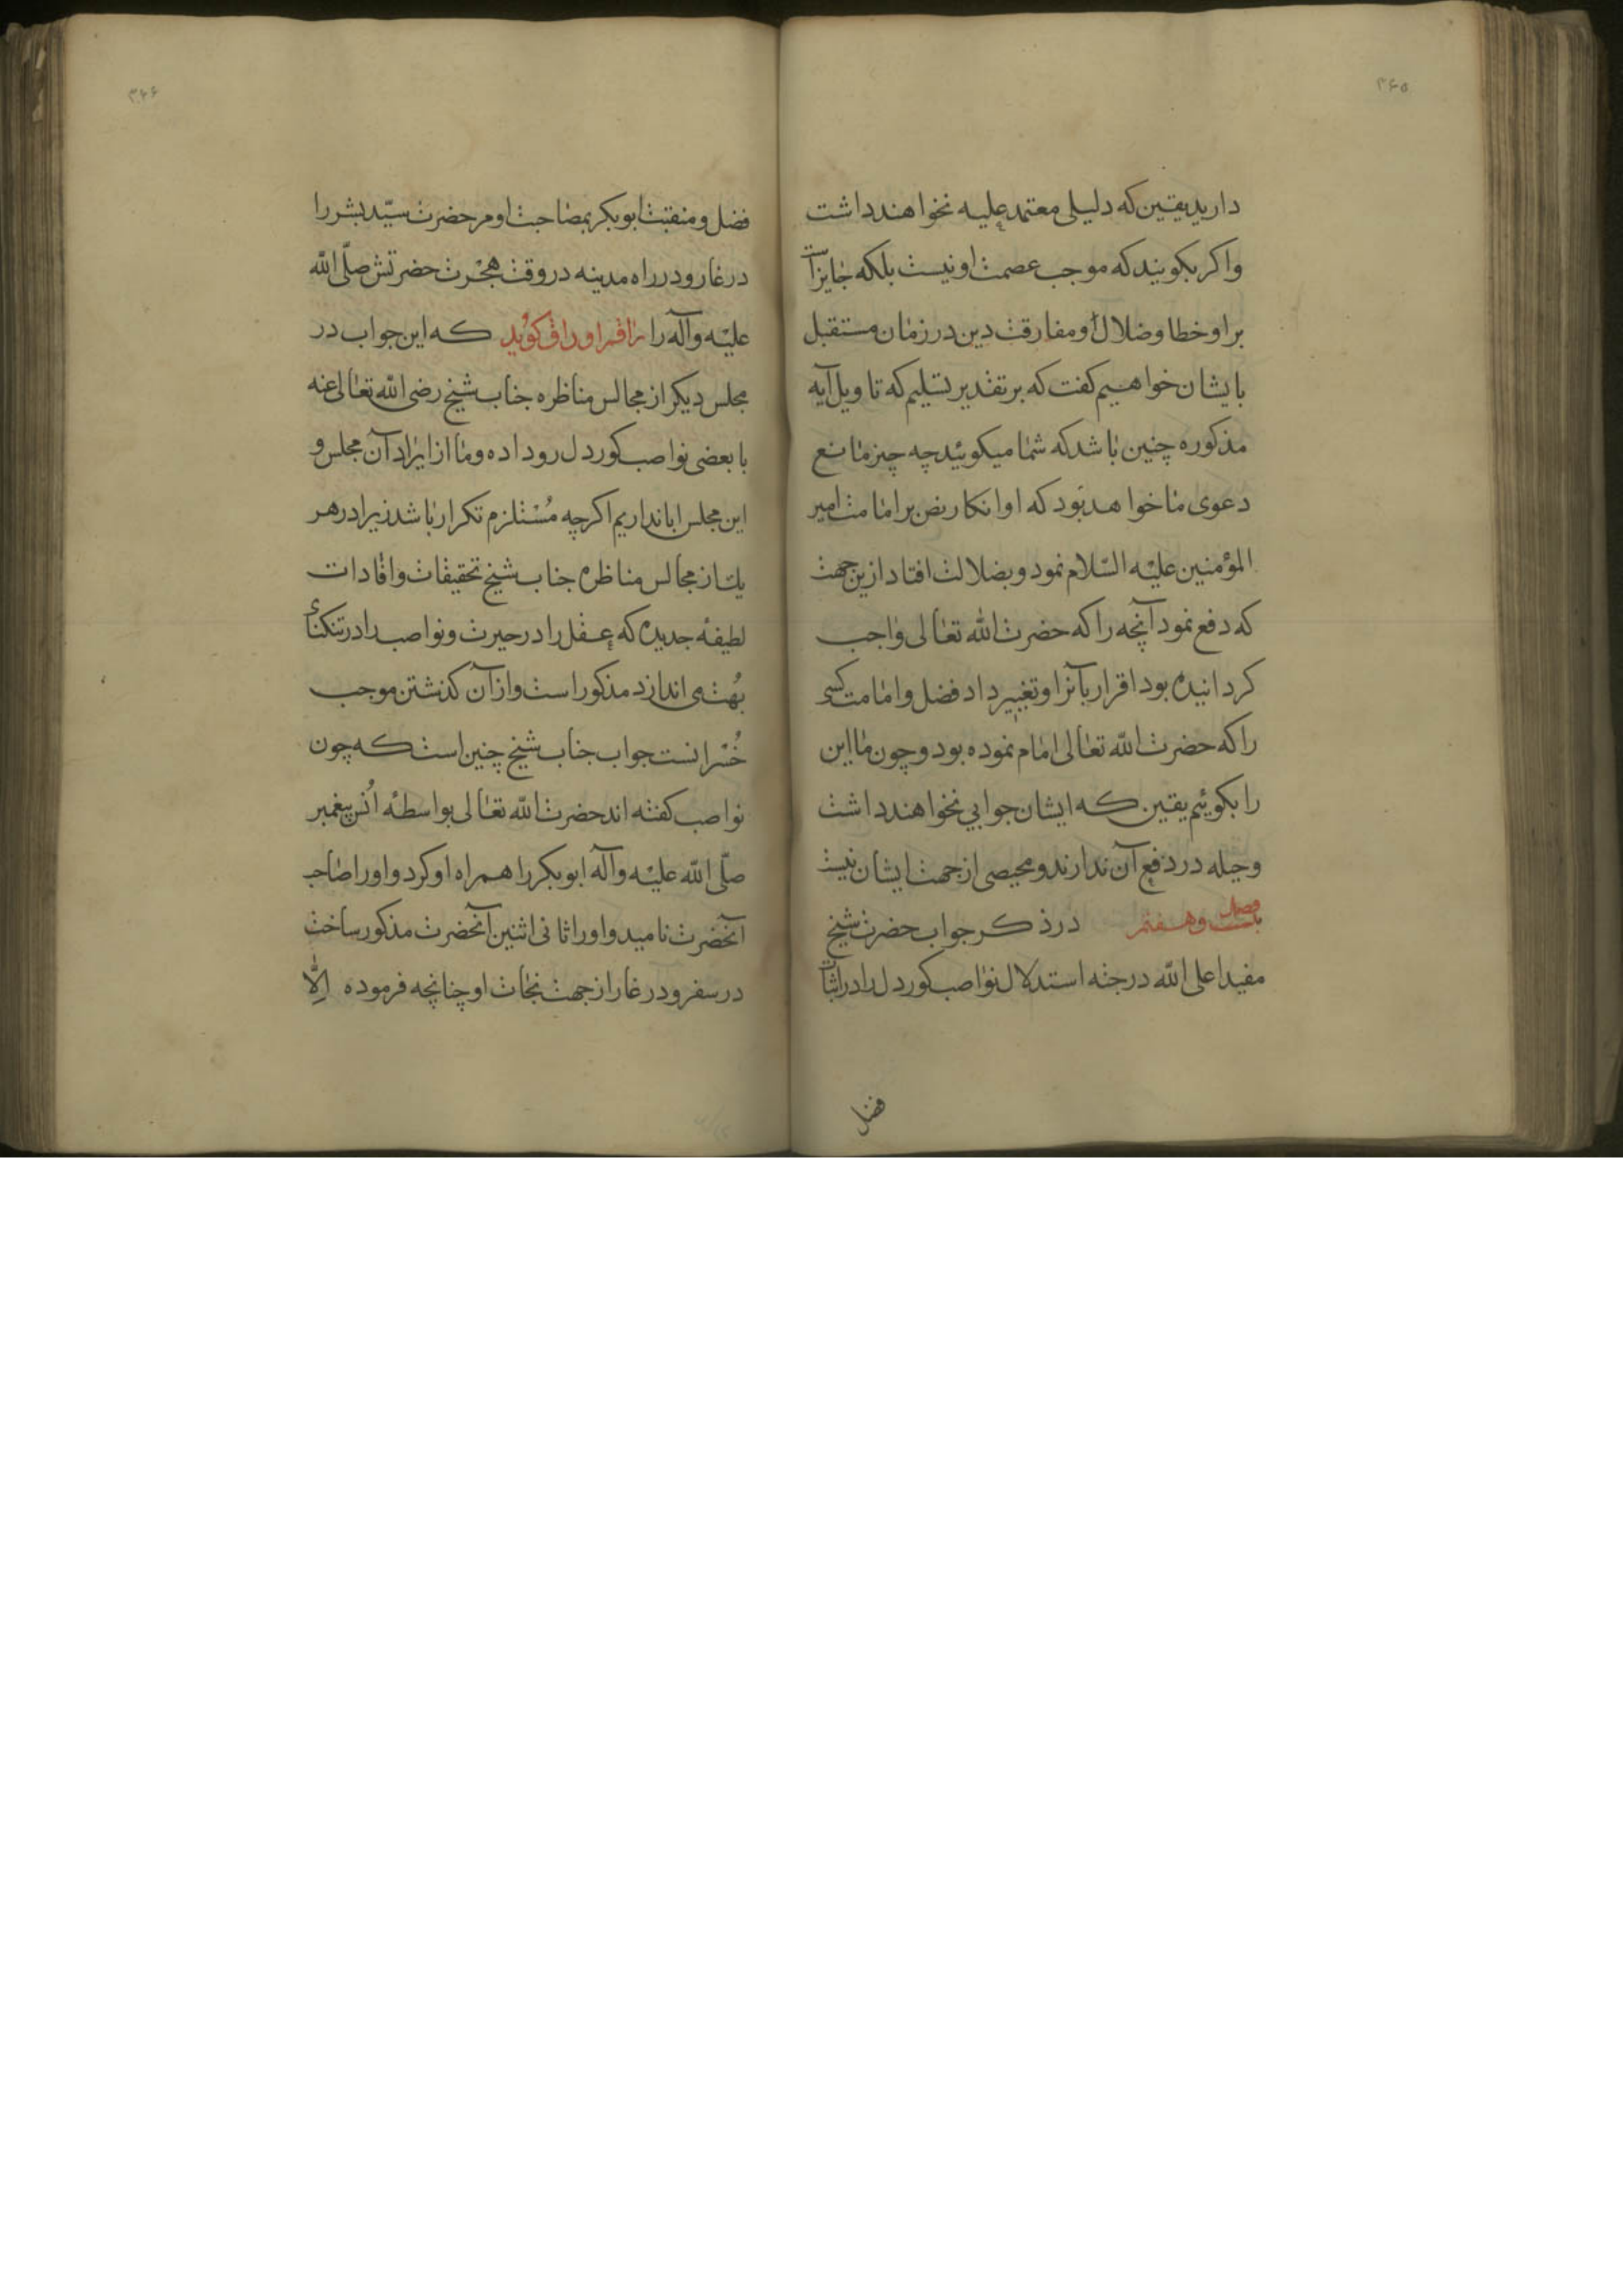 ۳۶۵
دارید یقین که دلیلی معتمد علیه نخواهند داشت
واکر بکویند که موجب عصمت او نیست بلکه جایز است
بر او خطا وضلال او ومفارقت دین در زمان مستقبل
بایشان خواهیم کفت که بر تقدیر تسلیم که تاویل آیه
مذکوره چنین باشد که شما میکوئید چه چیز مانع
دعوی ما خواهد بود که او انکار نص بر امامت امیر
المؤمنین علیه السّلام نمود و بضلالت افتاد ازین جهت
که دفع نمود آنچه را که حضرت الله تعالی واجب
کردانیده بود اقرار بآنرا وتغییر داد فضل وامامت کسی
را که حضرت الله تعالی امام نموده بود و چون ما این
را بکوئیم یقین که ایشان جوابی نخواهند داشت
وحیله در دفع آن ندارند و محیصی از جهت ایشان نیست
فصل بیست وهفتم در ذکر جواب حضرت شیخ
مفید اعلی الله درجته استدلال نواصب کوردل را در اثبات
فضل
۳۶۶
فضل و منقبت ابوبکر بمصاحبت او مر حضرت سیّد بشر را
در غار و در راه مدینه در وقت هجْرت حضرتش صلّی الله
علیْه وآله را راقم اوراق کوید که این جواب در
مجلس دیکر از مجالس مناظره جناب شیخ رضی الله تعالی عنه
با بعضی نواصب کوردل روداده وما از ایراد آن مجلس و
این مجلس ابا نداریم اکرچه مُسْتلزم تکرار باشد زیرا در هر
یک از مجالس مناظره جناب شیخ تحقیقات وافادات
لطیفه جدیده که عقل را در حیرت و نواصب را در تنکنای
بُهت می اندازد مذکور است واز آن کذشتن موجب
خُسْرانست جواب جناب شیخ چنین است که چون
نواصب کفته اند حضرت الله تعالی بواسطهٔ اُنس پیغمبر
صلّی الله علیْه وآله ابوبکر را همراه او کرد واو را صاحب
آنحضرت نامید واو را ثانی اثنین آنحضرت مذکور ساخت
در سفر و در غار از جهت نجات او چنانچه فرموده اِلّا